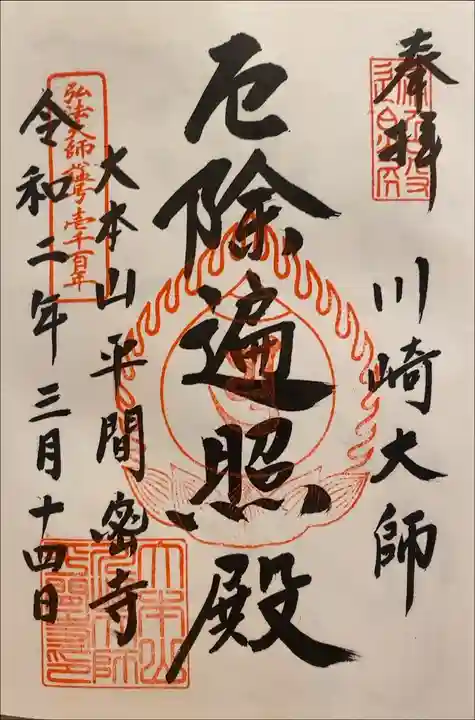 奉拝
川崎大師
厄除遍照殿
大本山平間密寺
令和二年三月十四日
弘法大師 壱千百年